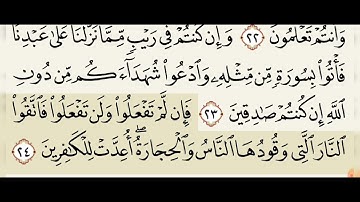 وَأَنتُمْ تَعْلَمُونَ ٢٢ وَإِن كُنتُمْ فِي رَيْبٍ مِّمَّا نَزَّلْنَا عَلَىٰ عَبْدِنَا
فَأْتُوا۟ بِسُورَةٍ مِّن مِّثْلِهِۦ وَٱدْعُوا۟ شُهَدَآءَكُم مِّن دُونِ
ٱللَّهِ إِن كُنتُمْ صَٰدِقِينَ ٢٣ فَإِن لَّمْ تَفْعَلُوا۟ وَلَن تَفْعَلُوا۟ فَٱتَّقُوا۟
ٱلنَّارَ ٱلَّتِي وَقُودُهَا ٱلنَّاسُ وَٱلْحِجَارَةُ ۖ أُعِدَّتْ لِلْكَٰفِرِينَ ٢٤